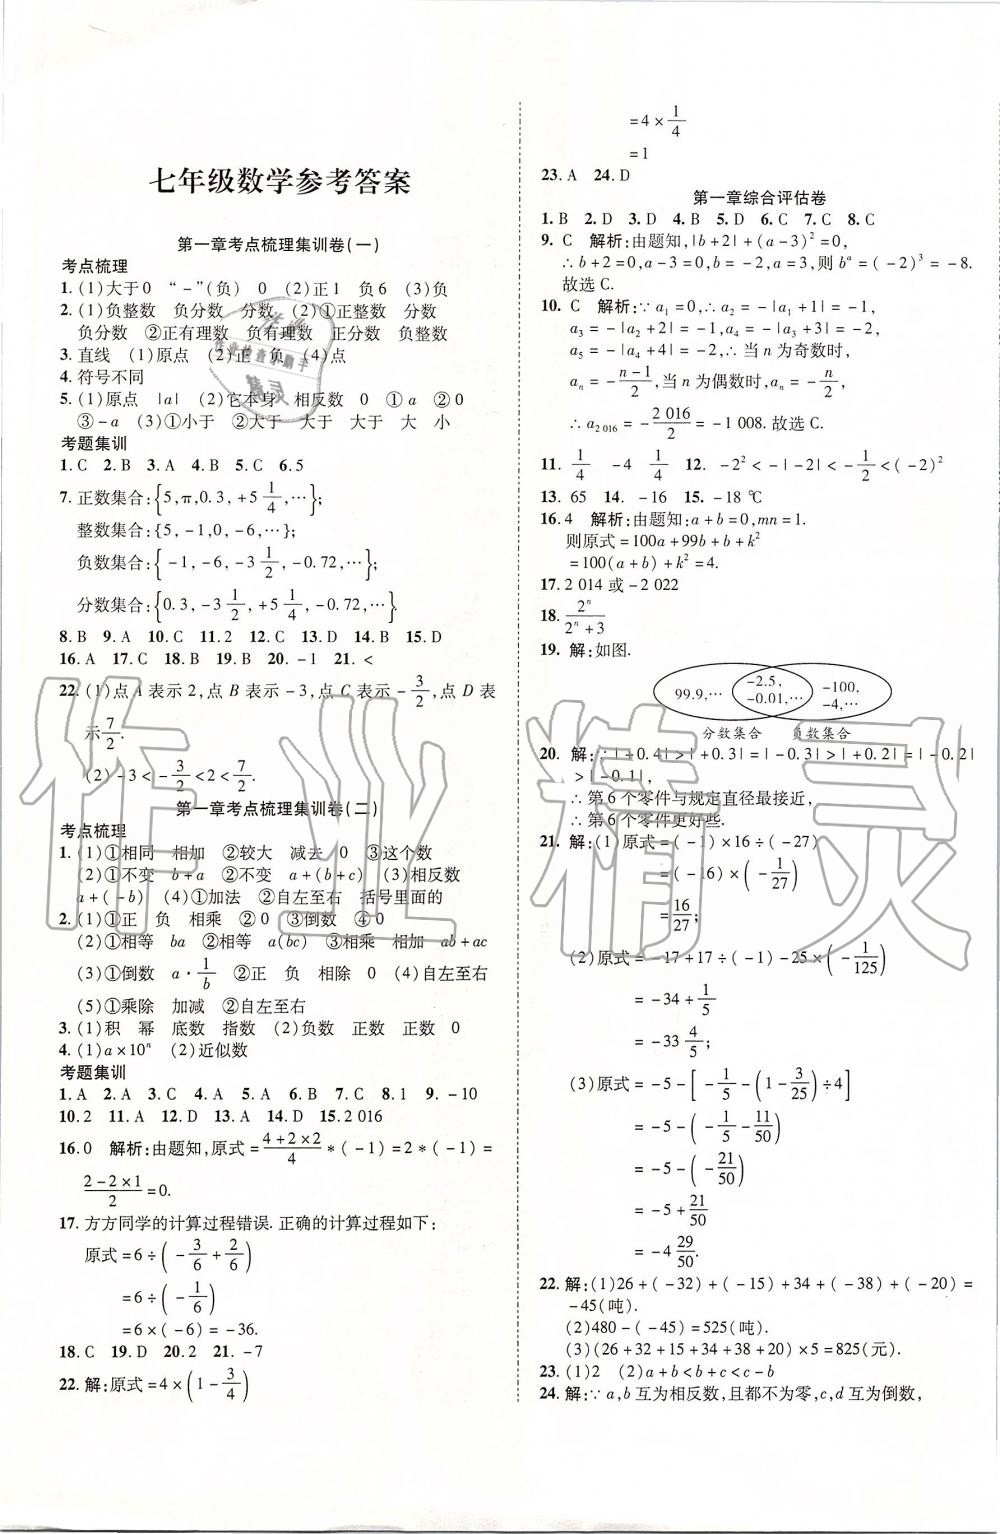 七年级数学参考答案
第一章考点梳理集训卷(一)
考点梳理
1. (1)大于0 “-”(负) 0 (2)正1 负6 (3)负
2. (1)负整数 负分数 分数 (2)①正整数 分数
负分数 ②正有理数 负有理数 正分数 负整数
3. 直线 (1)原点 (2)正 负 (4)点
4. 符号不同
5. (1)原点 |a| (2)它本身 相反数 0 ①a ②0
③-a (3)①小于 ②大于 大于 大 小
考题集训
1. C 2. B 3. A 4. B 5. C 6. 5
7. 正数集合:{5,π,0.3,+5 1/4,…};
整数集合:{5,-1,0,-6,…};
负数集合:{-1,-6,-3 1/2,-0.72,…};
分数集合:{0.3,-3 1/2,+5 1/4,-0.72,…}
8. B 9. A 10. C 11. 2 12. D 13. D 14. B 15. D
16. A 17. C 18. B 19. B 20. -1 21. <
22. (1)点A表示2,点B表示-3,点C表示-3/2,点D表
示7/2.
(2)-3<-3/2<2<7/2.
第一章考点梳理集训卷(二)
考点梳理
1. (1)①相同 相加 ②较大 减去 0 ③这个数
(2)①不变 b+a ②不变 a+(b+c) (3)相反数
a+(-b) (4)①加法 ②自左至右 括号里面的
2. (1)①正 负 相乘 ②0 ③倒数 ④0
(2)①相等 ba ②相等 a(bc) ③相乘 相加 ab+ac
(3)①倒数 a·1/b ②正 负 相除 0 (4)自左至右
(5)①乘除 加减 ②自左至右
3. (1)积 幂 底数 指数 (2)负数 正数 正数 0
4. (1)a×10ⁿ (2)近似数
考题集训
1. A 2. A 3. C 4. A 5. A 6. B 7. C 8. 1 9. -10
10. 2 11. A 12. D 13. A 14. D 15. 2 016
16. 0 解析:由题知,原式=(4+2×2)/4*(-1)=2*(-1)=
(2-2×1)/2=0.
17. 方方同学的计算过程错误. 正确的计算过程如下:
原式=6÷(-3/6+2/6)
=6÷(-1/6)
=6×(-6)=-36.
18. C 19. D 20. 2 21. -7
22. 解:原式=4×(1-3/4)
=4×1/4
=1
23. A 24. D
第一章综合评估卷
1. B 2. D 3. D 4. B 5. D 6. C 7. C 8. C
9. C 解析:由题知,|b+2|+(a-3)²=0,
∴b+2=0,a-3=0,∴b=-2,a=3,则bᵃ=(-2)³=-8.
故选C.
10. C 解析:∵a₁=0,∴a₂=-|a₁+1|=-1,
a₃=-|a₂+2|=-1,a₄=-|a₃+3|=-2,
a₅=-|a₄+4|=-2,∴当n为奇数时,
aₙ=-(n-1)/2,当n为偶数时,aₙ=-n/2,
∴a₂ ₀₁₆=-2 016/2=-1 008. 故选C.
11. 1/4 -4 1/4 12. -2²<-|-2|<-1/2<(-2)²
13. 65 14. -16 15. -18 ℃
16. 4 解析:由题知:a+b=0,mn=1.
则原式=100a+99b+b+k²
=100(a+b)+k²=4.
17. 2 014或-2 022
18. 2ⁿ/(2ⁿ+3)
19. 解:如图.
99.9,… -2.5, -0.01,… -100, -4,…
分数集合 负数集合
20. 解:∵|+0.4|>|+0.3|=|-0.3|>|+0.2|=|-0.2|
>|-0.1|,
∴第6个零件与规定直径最接近,
∴第6个零件更好些.
21. 解:(1)原式=(-1)×16÷(-27)
=(-16)×(-1/27)
=16/27;
(2)原式=-17+17÷(-1)-25×(-1/125)
=-34+1/5
=-33 4/5;
(3)原式=-5-[-1/5-(1-3/25)÷4]
=-5-(-1/5-11/50)
=-5-(-21/50)
=-5+21/50
=-4 29/50.
22. 解:(1)26+(-32)+(-15)+34+(-38)+(-20)=
-45(吨).
(2)480-(-45)=525(吨).
(3)(26+32+15+34+38+20)×5=825(元).
23. (1)2 (2)a+b<b+c<c-b
24. 解:∵a,b互为相反数,且都不为零,c,d互为倒数,
作业精灵